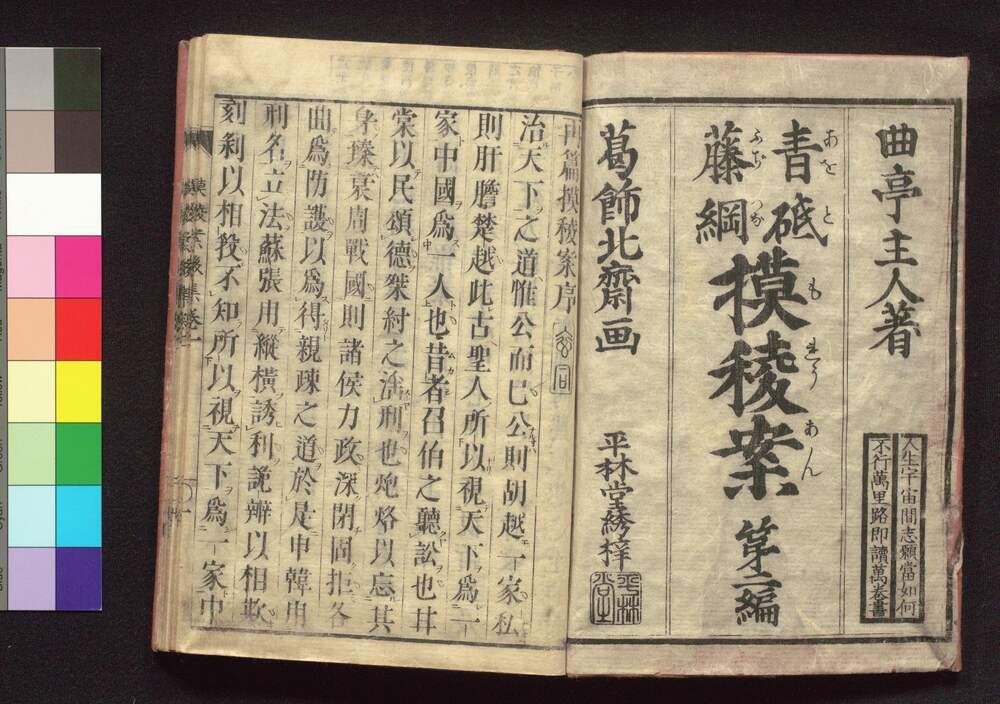 曲亭主人著
人生宇宙間志願當如何
不行萬里路即讀萬巻書
青砥
あをと
藤綱
ふぢつな
摸稜案
もりょうあん
第二編
葛飾北齋画
平林堂綉梓
再篇摸稜案序
治天下之道惟公而已公則胡越一家私
則肝膽楚越此古聖人所以視天下爲一
家中國爲一人也昔者召伯之聽訟也甘
棠以民頌德桀紂之淫刑也炮烙以忘其
身㙛衰周戰國則諸侯力政深閉固拒各
曲爲防護以爲得親疎之道於是申韓由
刑名立法蘇張用縱横誘利詭辨以相欺
刻剥以相殺不知所以視天下爲一家中